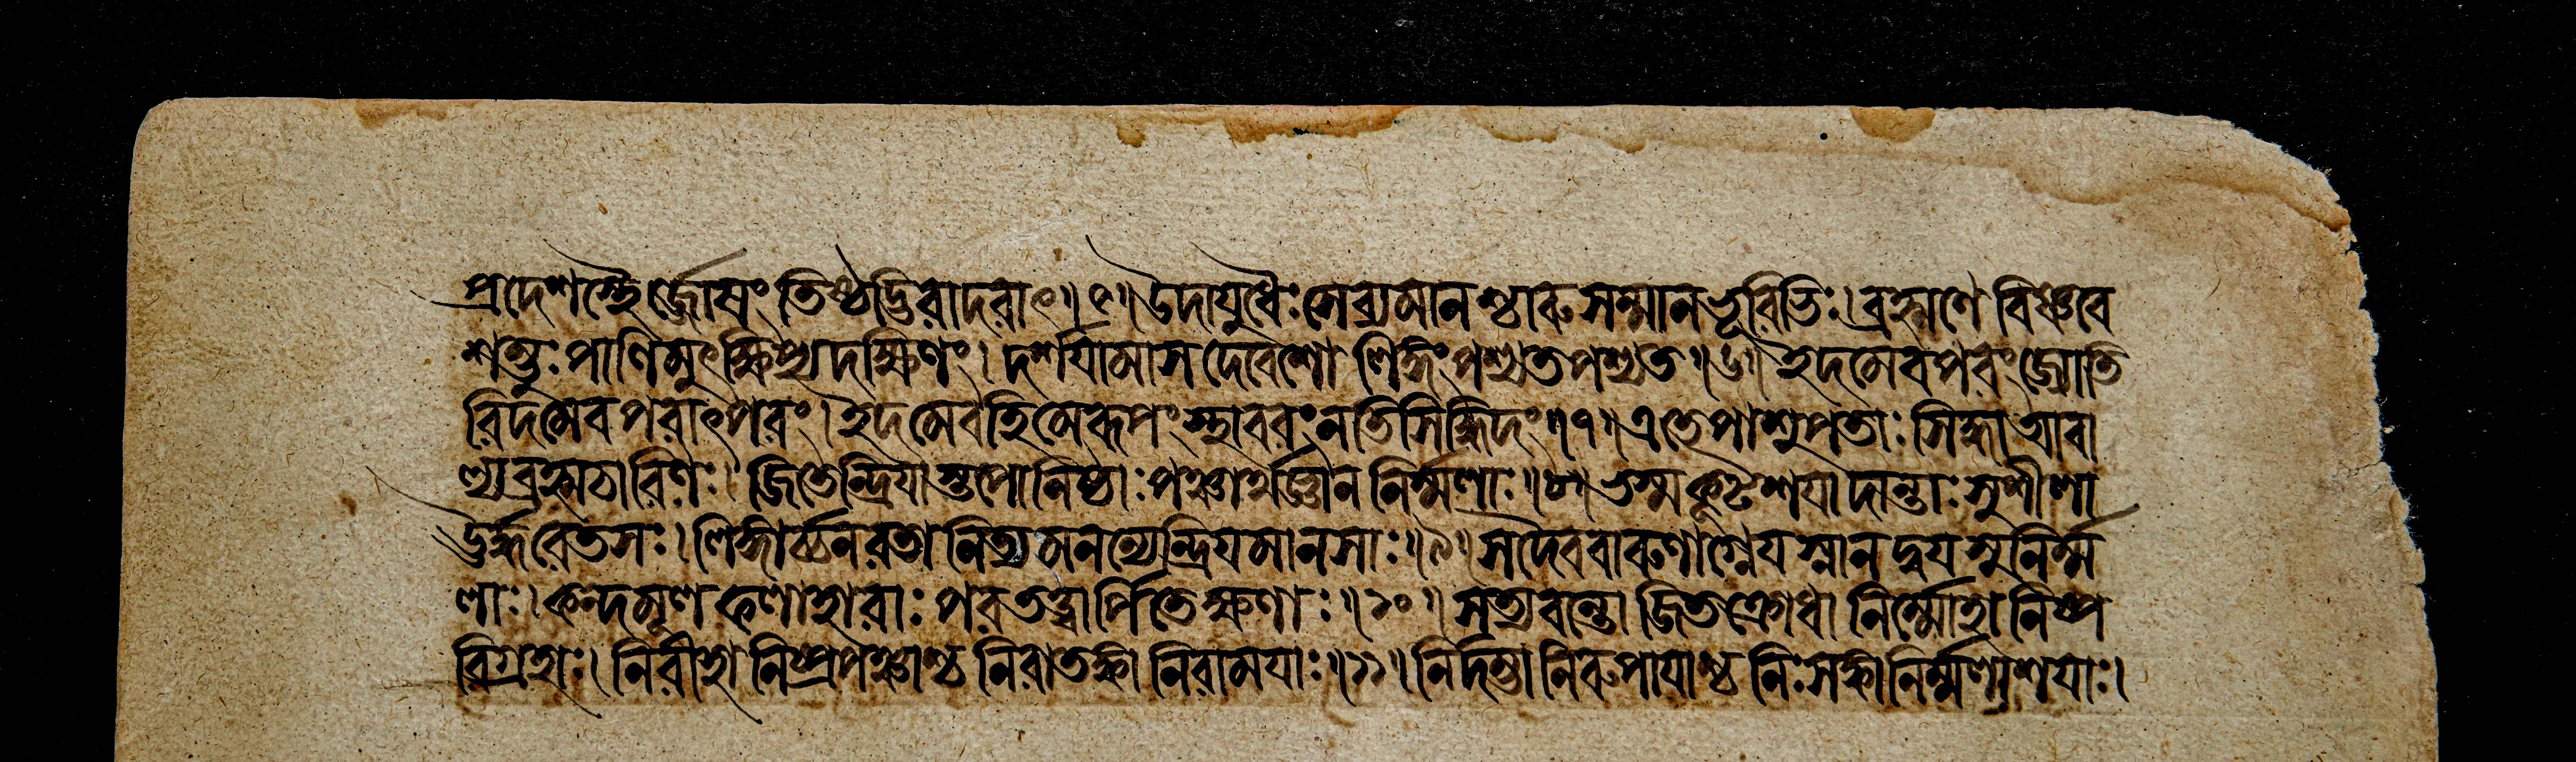 প্রদেশস্থৈর্জোষং তিষ্ঠদ্ভিরাদরাৎ॥৫॥উদাযুধৈঃ সেব্যমানশ্চারুসন্মানভূরিভিঃ।ব্রহ্মণে বিষ্ণবে
শম্ভুঃ পাণিমুৎক্ষিপ্য দক্ষিণং। দর্শযামাস দেবেশো লিঙ্গং পশ্যত পশ্যত॥৬॥ইদমেব পরং জ্যোতি
রিদমেব পরাৎপরং।ইদমেব হি মে রূপং স্থাবরং নতিসিদ্ধিদং॥৭॥এতে পাশুপতাঃ সিদ্ধা আবা
ল্যব্রহ্মচারিণঃ। জিতেন্দ্রিযাস্তপোনিষ্ঠাঃ পঞ্চার্থজ্ঞাননির্ম্মলাঃ॥৮॥ভস্মকূটশযা দান্তাঃ সুশীলা
ঊর্দ্ধরেতসঃ।লিঙ্গার্চ্চনরতা নিত্যমনন্যেন্দ্রিযমানসাঃ॥৯॥সদৈব বারুণাগ্নেযস্নানদ্বযসুনির্ম্ম
লাঃ।কন্দমূলফলাহারাঃ পরতত্ত্বার্পিতেক্ষণাঃ॥১০॥সত্যবন্তো জিতক্রোধা নির্ম্মোহা নিষ্প
রিগ্রহাঃ। নিরীহা নিষ্প্রপঞ্চাশ্চ নিরাতঙ্কা নিরামযাঃ॥১১॥নির্দম্ভা নিরুপাযাশ্চ নিঃসঙ্গা নির্ম্মলাশযাঃ।